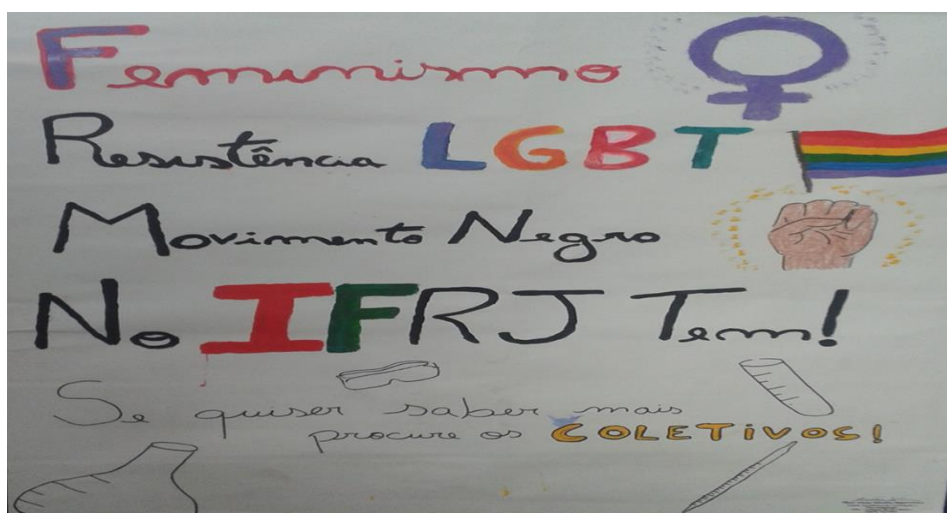 Feminismo
Resistência LGBT
Movimento Negro
No IFRJ Tem!
Se quiser saber mais
procure os COLETiVOS!